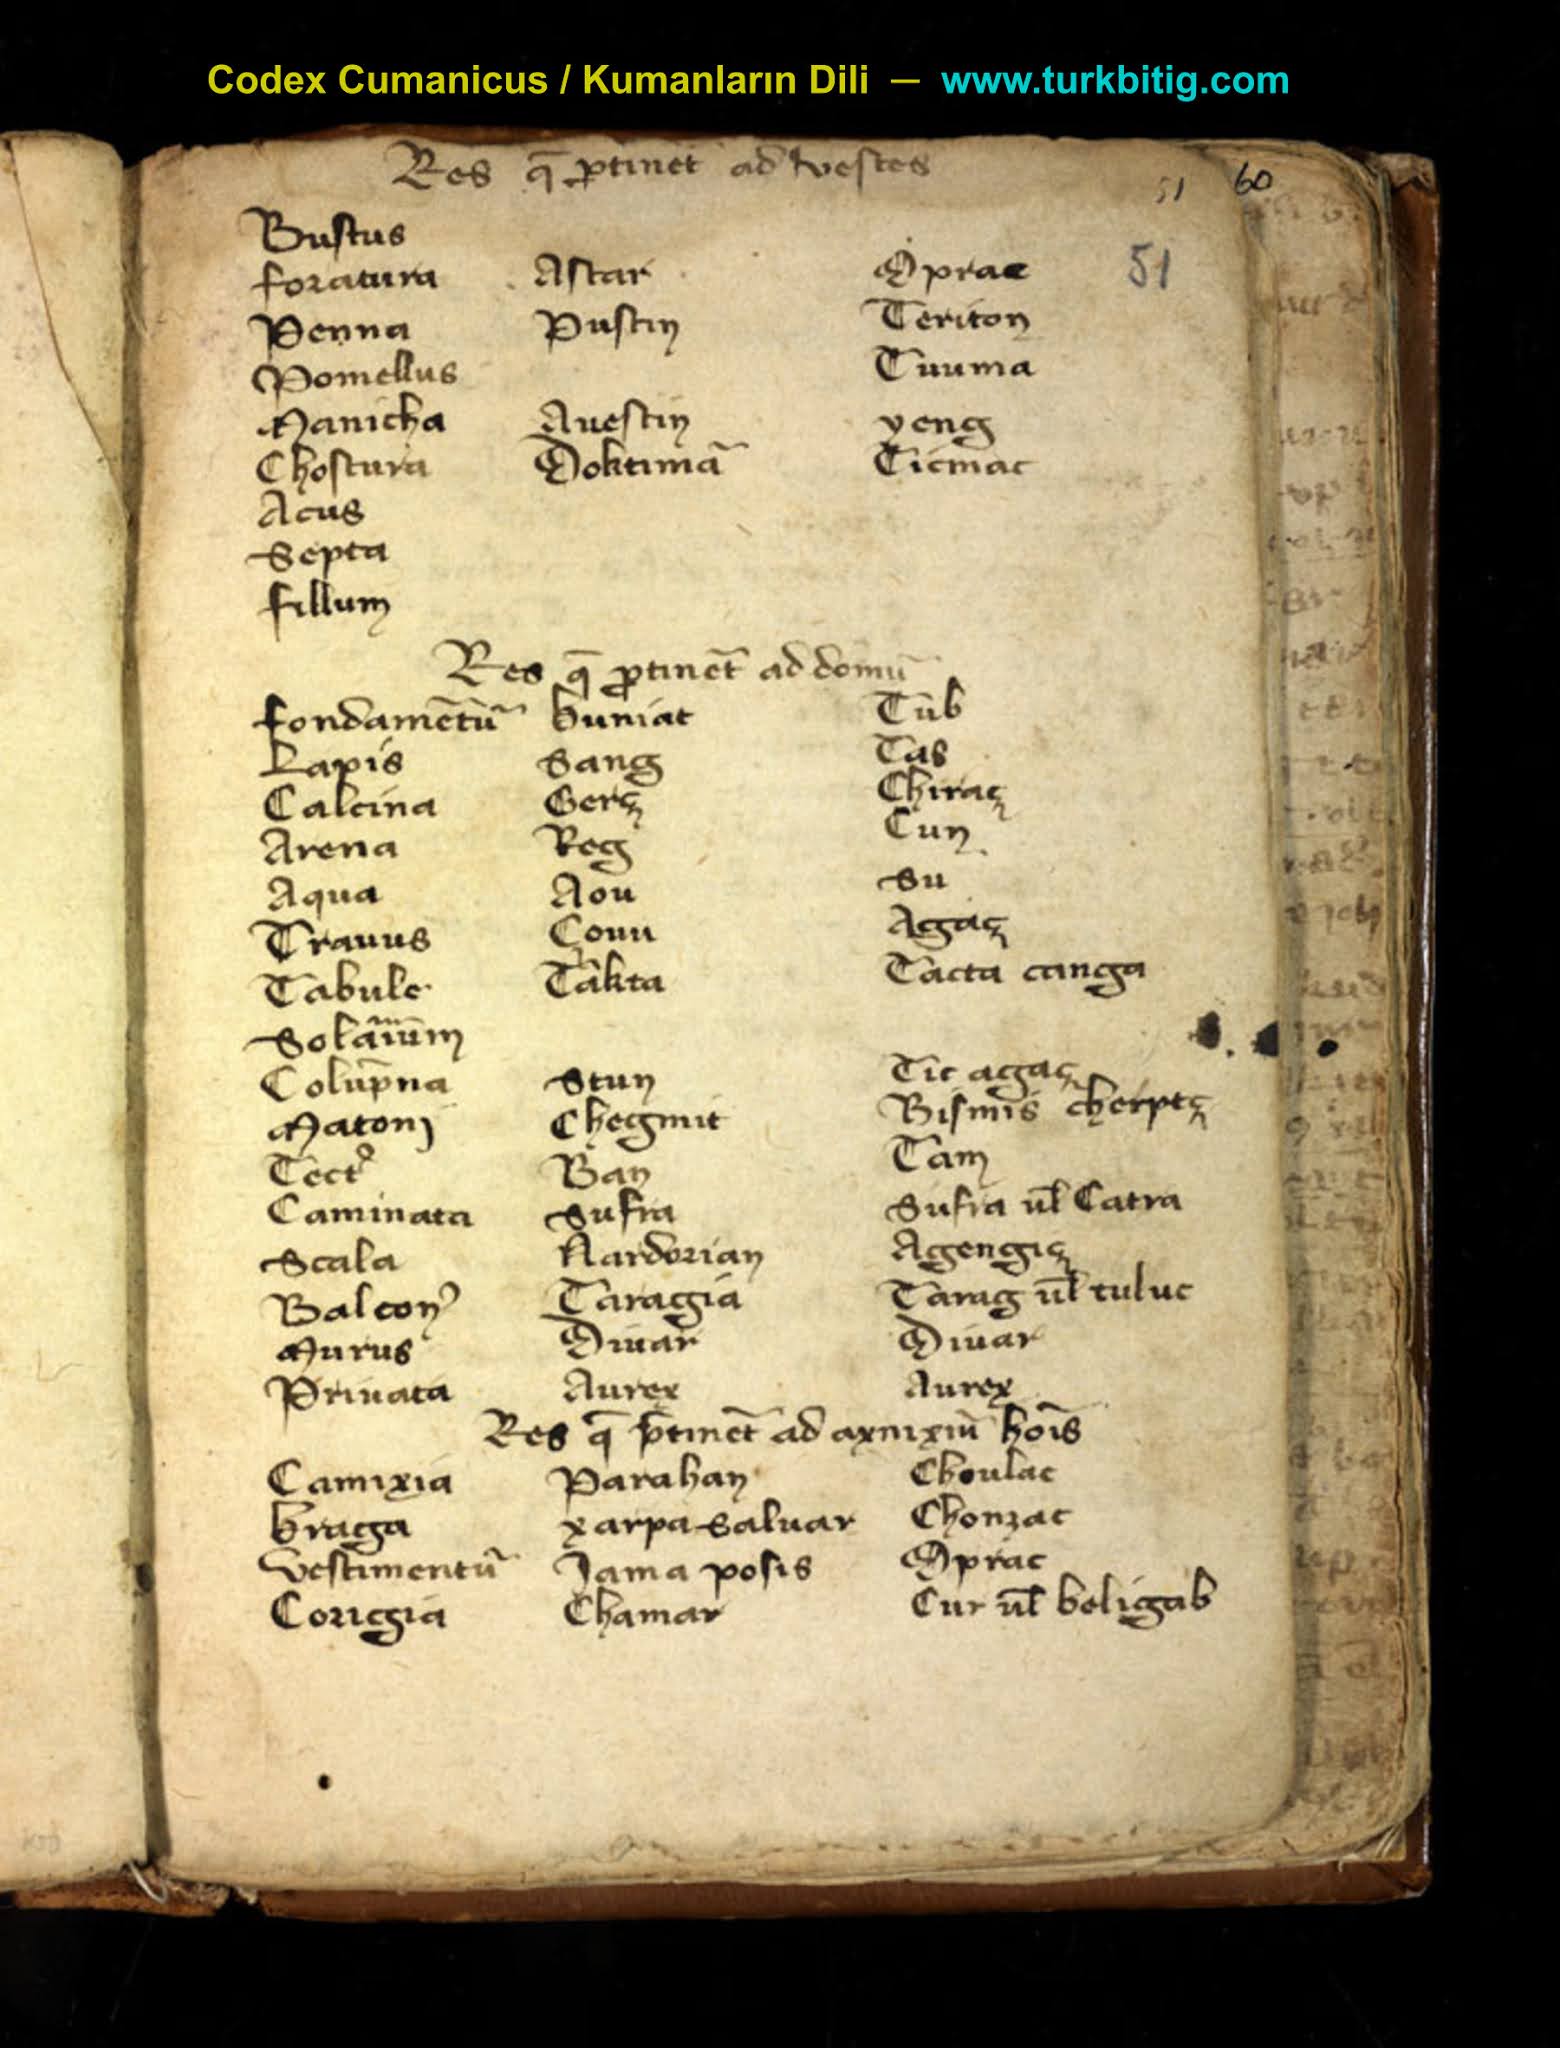 Codex Cumanicus / Kumanların Dili — www.turkbitig.com
Res q̄ ꝑtinet ad vestes
51 60
Bustus
foratura Astar Oprac 51
Penna Pustin Teriton
Pomellus Tuuma
Manicha Auestin yeng
Chostura Doktimā Ticmac
Acus
Septa
fillum
Res q̄ ꝑtinēt ad domū
fondamētū buniat Tub
Lapis Sang Tas
Calcina Gerç Chiraç
Arena Reg Cun
Aqua Aou Su
Trauus Couu Agaç
Tabule Takta Tacta canga
Solaiūm
Colūpna Stun Tic agaç
Matonj Chegmit Bismis cherpeç
Tect⁹ Ban Tam
Caminata Sufra Sufra ul̄ Catra
Scala Nardorian Agengiç
Balcon⁹ Taragia Tarag ul̄ tuluc
Murus Diuar Diuar
Priuata Aurex Aurex
Res q̄ ꝑtinēt ad axnixiū hoīs
Camixia Parahan Choulac
braga xarpa saluar Chonzac
Vestimentū Jama posis Oprac
Corigia Chamar Cur ul̄ beligab